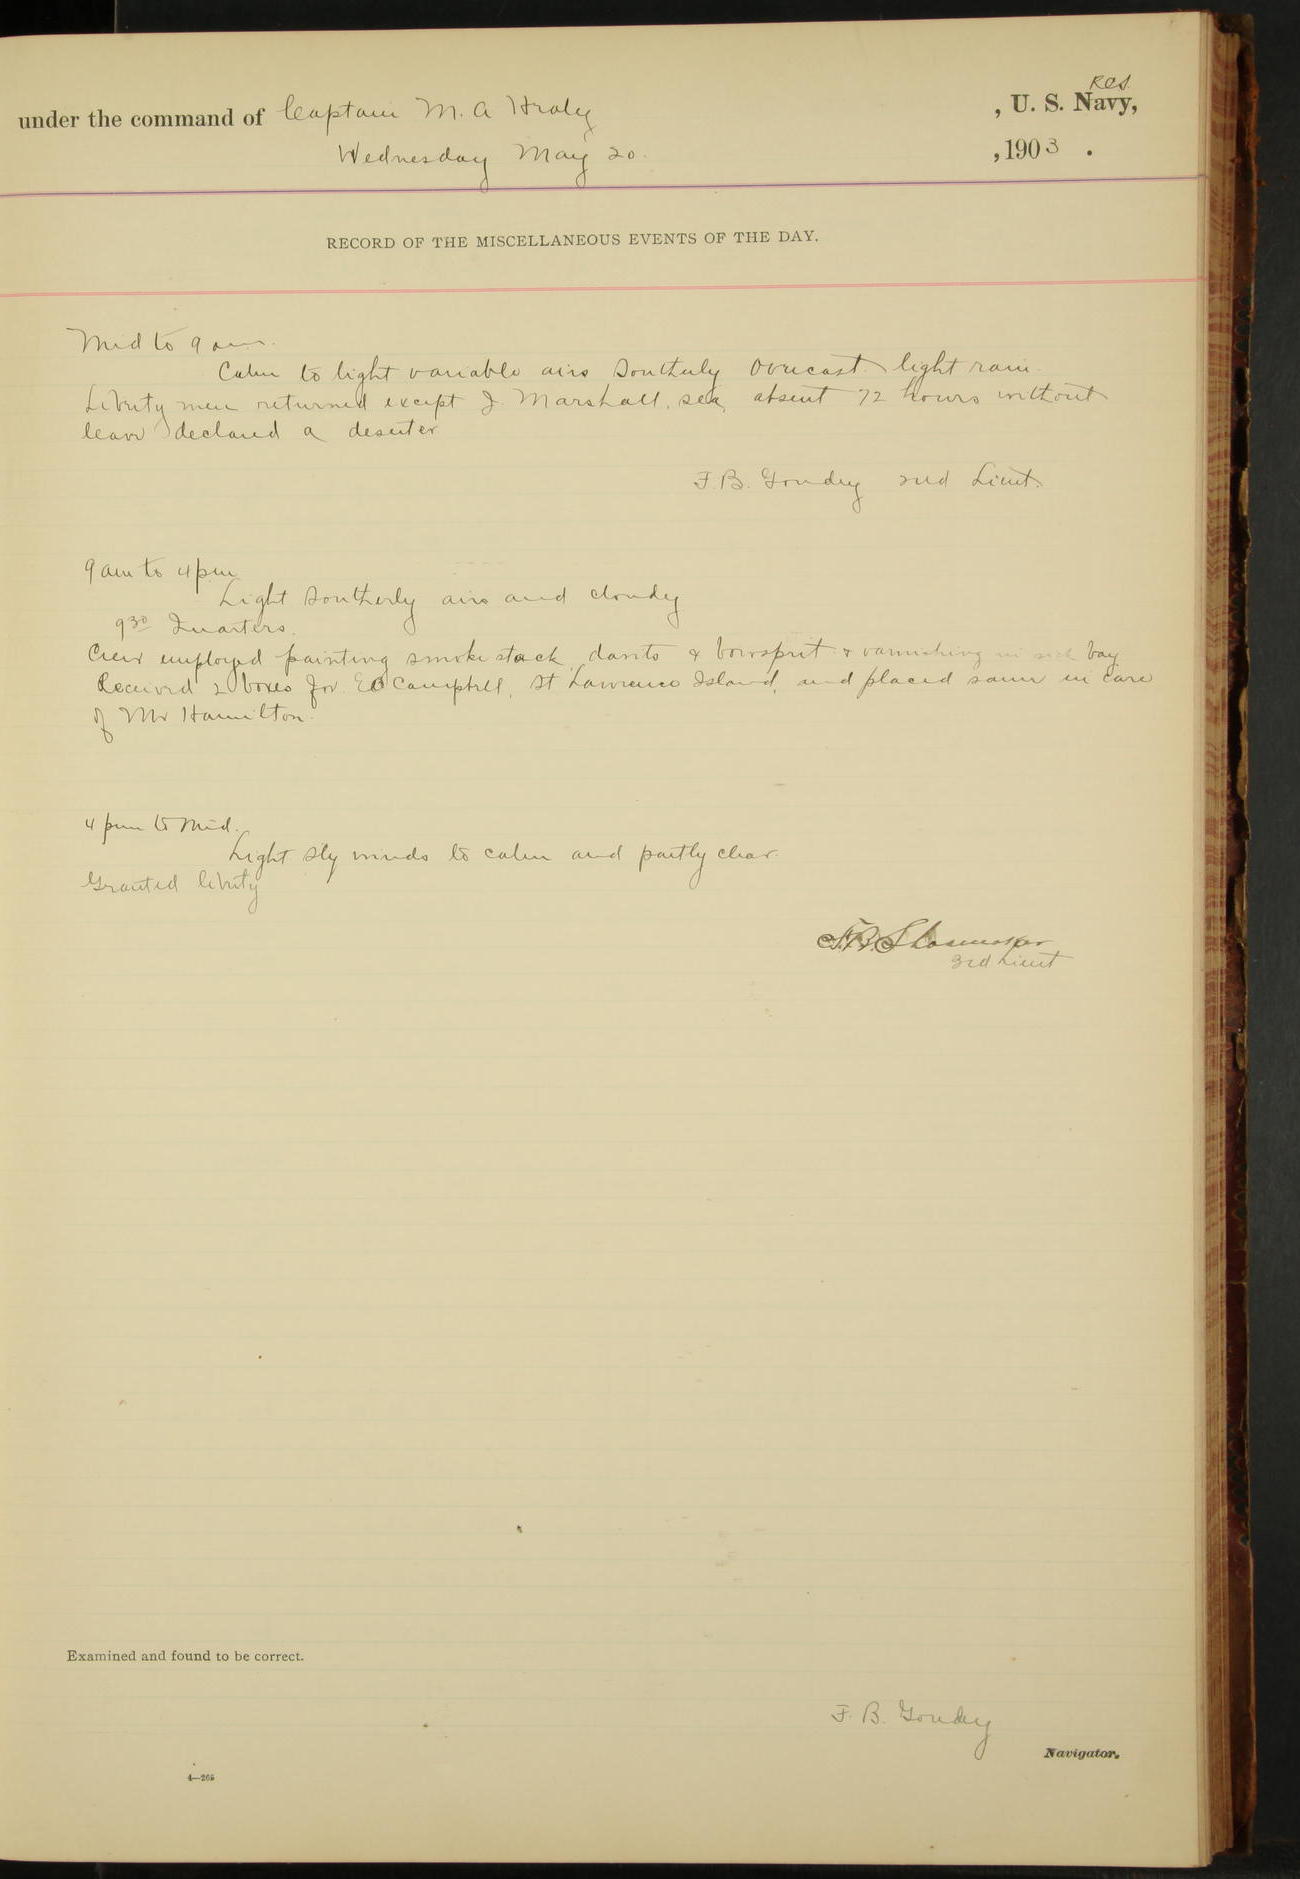 under the command of Captain M. A Healy , U. S. Navy, RCS
Wednesday May 20. , 1903 .
RECORD OF THE MISCELLANEOUS EVENTS OF THE DAY.
Mid to 9 am.
Calm to light variable airs Southerly Overcast light rain.
Liberty men returned except J. Marshall, sea, absent 72 hours without
leave declared a deserter
F. B. Goudey 2nd Lieut.
9 am to 4 pm
Light Southerly airs and cloudy
9 30 Quarters.
Crew employed painting smoke stack, davits & bowsprit & varnishing in sick bay
Received 2 boxes for E O Campbell, St Lawrence Island, and placed same in care
of Mr Hamilton.
4 pm to Mid.
Light Sly winds to calm and partly clear.
Granted liberty
3rd Lieut
Examined and found to be correct.
F. B. Goudey
Navigator.
4—265